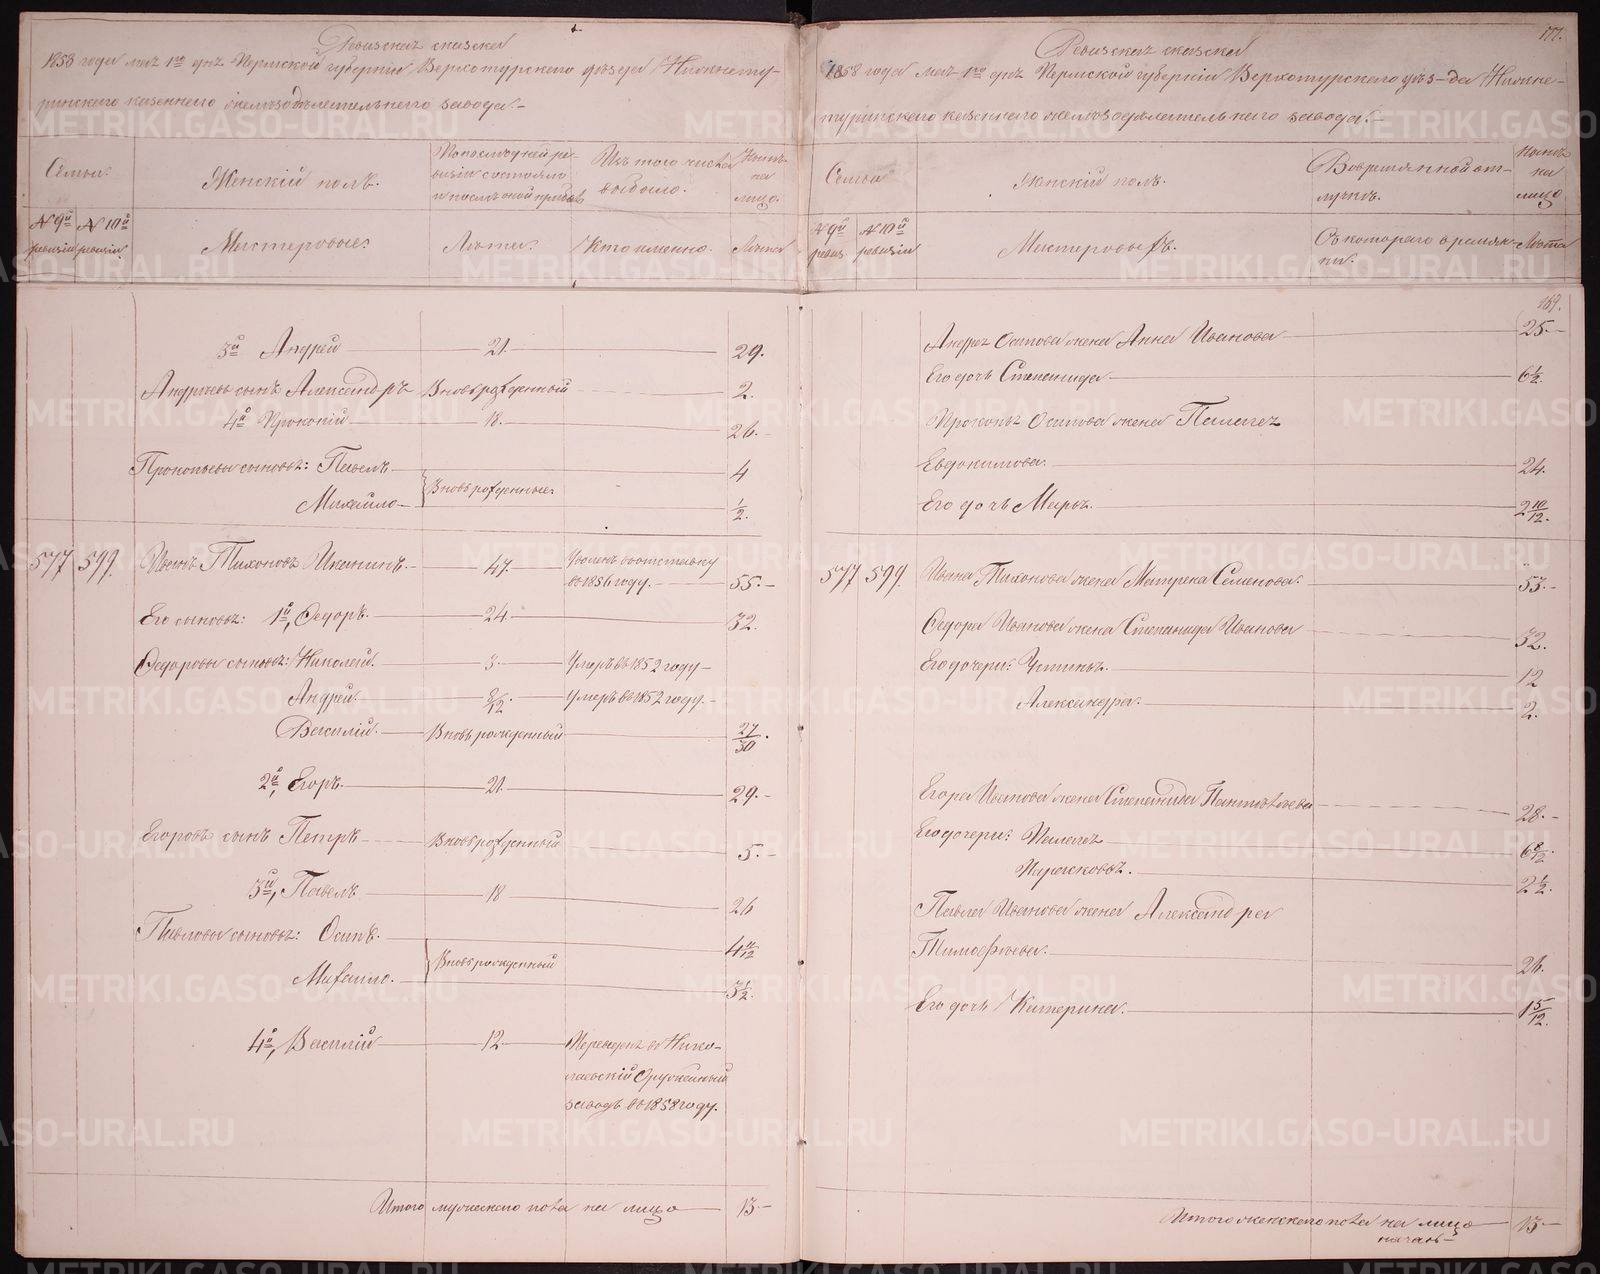 Ревизская сказка
1858 года мая 1го дня Пермской губерніи Верхотурскаго уѣзда Нижнету-
ринскаго казеннаго желѣзодѣлательнаго завода.-
Семьи.
Женскій полъ.
По последней ре-
визіи состояло
и послѣ оной прибыло
Изъ того числа
выбыло.
Нынѣ
на
лицо.
№ 9й ревизіи
№ 10й ревизіи.
Мастеровые:
Лѣта.
Кто именно.
Лѣта
3й Андрей 21. 29.
Андреевъ сынъ Александръ Вновь рожденный 2.
4й Прокопій 18. 26.
Прокопьевы сыновья: Павелъ 4
Вновь рожденные.
Михайло 1/2.
577 599. Иванъ Тихоновъ Иканинъ. 47. Уволенъ въ отставку
въ 1856 году. 55.
Его сыновья: 1й, Ѳедоръ. 24. 32.
Ѳедоровы сыновья: Николай. 3. Умеръ въ 1852 году
Андрей. 8/12. Умеръ въ 1852 году.
Василій. Вновь рожденный 27/30.
2й, Егоръ. 21. 29.
Егоровъ сынъ Петръ Вновь рожденный 5.
3й, Павелъ 18 26
Павловы сыновья: Осипъ. 4 11/12
Вновь рожденный
Михайло. 3 1/2.
4й, Василій 12. Переведенъ въ Нико-
лаевскій Оружейный
заводъ въ 1858 году.
Итого мужескаго пола на лицо 13.
177.
Ревизская сказка
1858 года мая 1го дня Пермской губерніи Верхотурскаго уѣз-да Нижне-
туринскаго казеннаго желѣзодѣлательнаго завода.-
Семьи
Женскій полъ.
Во временной от-
лучкѣ.
Нынѣ
на
лицо
№ 9й ревиз.
№ 10й ревизіи
Мастеровыхъ.
Съ котораго време-
ни.
Лѣта
169.
Андрея Осипова жена Анна Иванова 25.
Его дочь Степанида 6 1/2.
Прокопья Осипова жена Палагея
Евдокимова. 24.
Его дочь Марья. 2 10/12.
577 599. Ивана Тихонова жена Матрена Семенова. 53.
Ѳедора Иванова жена Степанида Иванова 32.
Его дочери: Устинья. 12
Александра. 2.
Егора Иванова жена Степанида Пантелѣева 28.
Его дочери: Палагея 6 8/12.
Парасковья. 2 1/2.
Павла Иванова жена Александра
Тимофѣева. 26.
Его дочь Катерина. 1 5/12.
Итого женскаго пола на лицо 13
METRIKI.GASO-URAL.RU